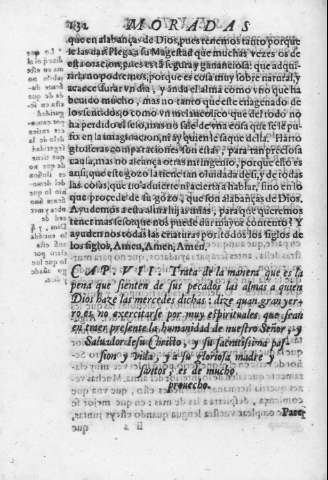 132 MORADAS
que en alabanças de Dios, pues tenemos tanto porque
se las dar! Plega a su Magestad que muchas vezes os dè
esta oracion, pues es tã segura y gananciosa: que adqui-
rirla no podremos, porque es cosa muy sobrenatural, y
acaece durar vn dia, y ãnda el alma como vno que ha
bevido mucho, mas no tanto que este enagenado de
los sentidos; o como vn melancolico que del todo no
ha perdido el seso, mas no sale de vna cosa que se le pu-
so en la imaginacion, ni ay quien le saque de la. Harto
groseras comparaciones son estas, para tan preciosa
causa, mas no alcança otras mi ingenio, porque ello es
assi; que este gozo la tiene tan oluidada de si, y de todas
las cosas, que no aduierte ni acierta a hablar, sino en lo
que procede de su gozo, que son alabanças de Dios.
Ayudemos a esta alma hijas mias, para que queremos
tener mas seso? que nos puede dar mayor contento? Y
ayuden nos todas las criaturas por todos los siglos de
los siglos, Amen, Amen, Amen.
CAP. VII. Trata de la manera que es la
pena que sienten de sus pecados las almas a quien
Dios haze las mercedes dichas: dize quan gran yer-
ro es no exercitarse por muy espirituales que sean
en traer presente la humanidad de nuestro Señor, y
Saluador Iesu Christo, y su sacratissima pas-
sion y vida, y a su gloriosa madre y
santos; es de mucho
prouecho.